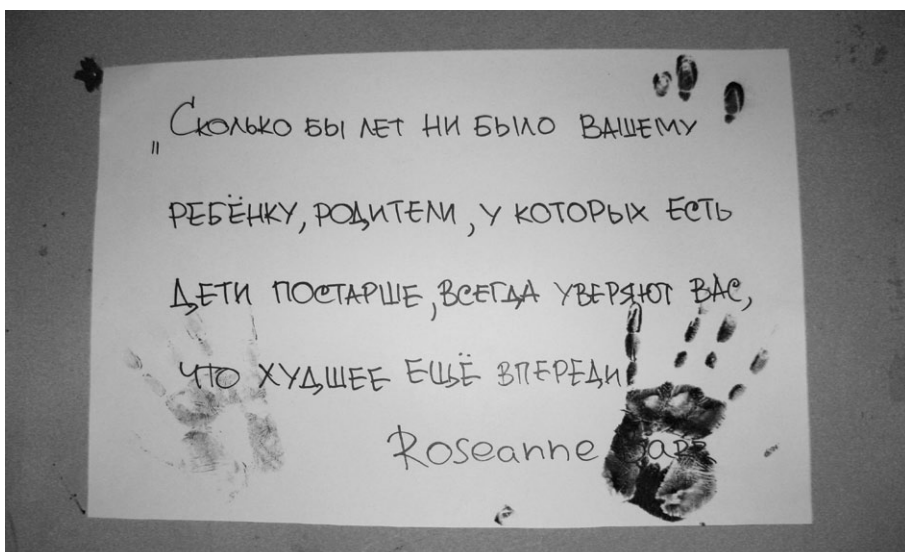 „Сколько бы лет ни было вашему
ребёнку, родители, у которых есть
дети постарше, всегда уверяют вас,
что худшее ещё впереди
Roseanne Barr